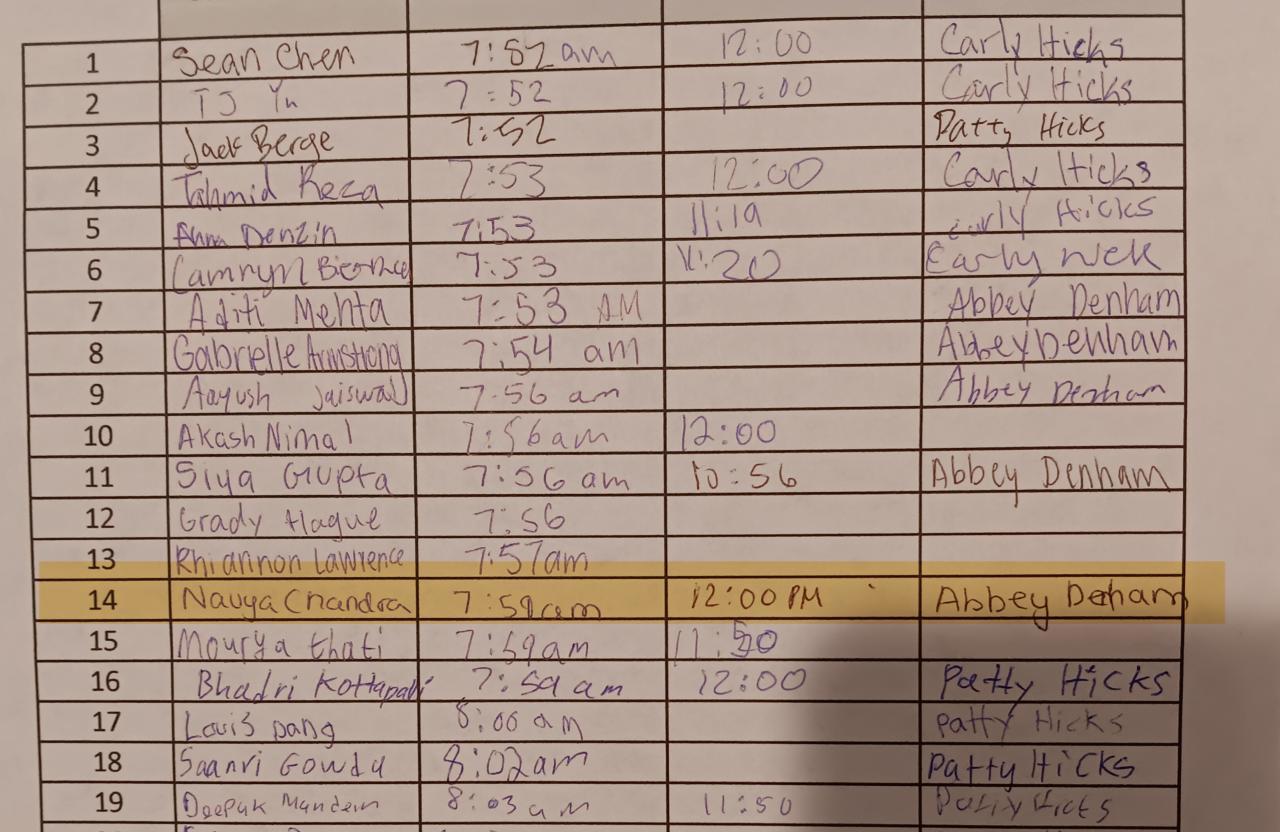 1 Sean Chen 7:52 am 12:00 Carly Hicks
2 TJ Yu 7:52 12:00 Carly Hicks
3 Jack Berge 7:52 Patty Hicks
4 Tahmid Reza 7:53 12:00 Carly Hicks
5 Denzin 7:53 11:19 Carly Hicks
6 Camryn 7:53 11:20 Carly
7 Aditi Mehta 7:53 AM Abbey Denham
8 Gabrielle Armstrong 7:54 am Abbey Denham
9 Aayush Jaiswal 7:56 am Abbey Denham
10 Akash Nimal 7:56am 12:00
11 Siya Gupta 7:56 am 10:56 Abbey Denham
12 Grady Hague 7:56
13 Rhiannon Lawrence 7:57am
14 Navya Chandra 7:59am 12:00 PM Abbey Denham
15 Mourya thati 7:59am
16 Bhadri Kottapalli 7:59 am 12:00 Patty Hicks
17 Louis Dang 8:00 am Patty Hicks
18 Saanvi Gowda 8:02am Patty Hicks
19 Deepak 8:03 am 11:50 Patty Hicks